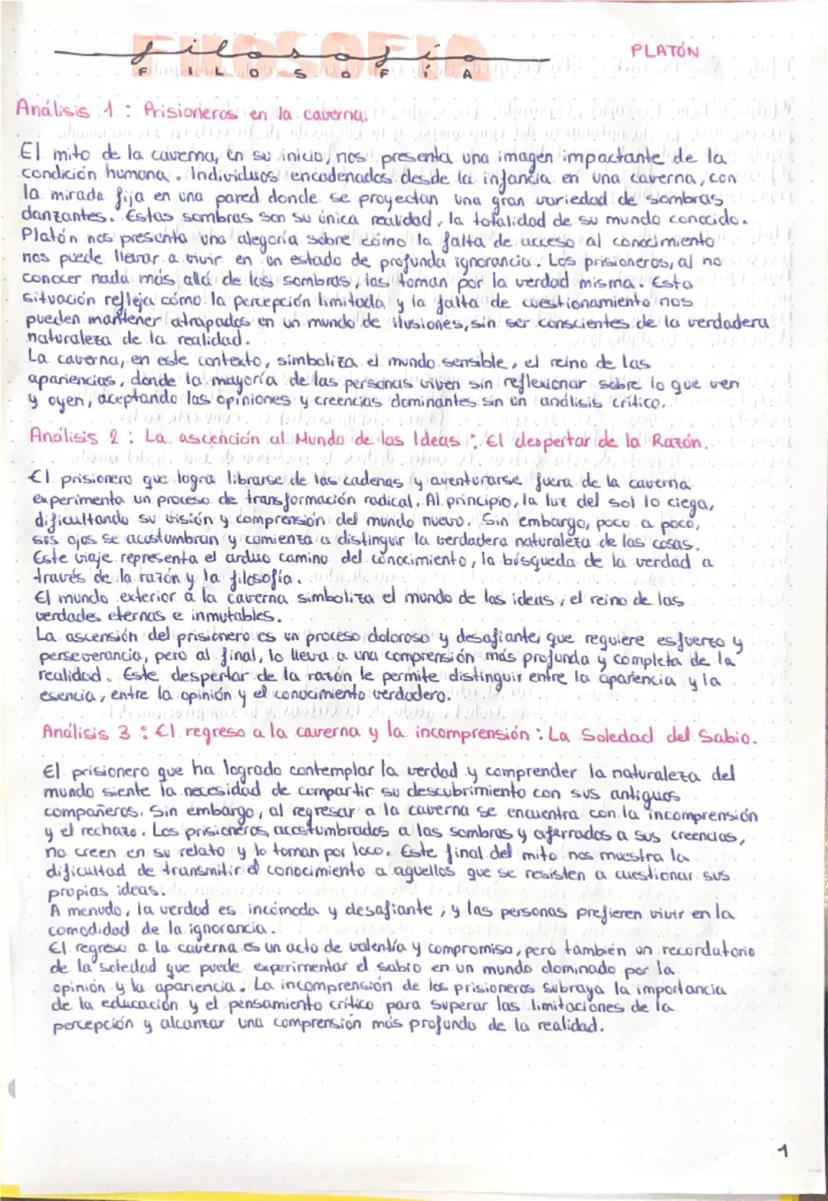 FILOSOFIA
filosofía
FILOSOFÍA
PLATÓN
Análisis 1: Prisioneros en la caverna.
El mito de la caverna, en su inicio, nos presenta una imagen impactante de la
condición humana. Individuos encadenados desde la infancia en una caverna, con
la mirada fija en una pared donde se proyectan una gran variedad de sombras
danzantes. Estas sombras son su única realidad, la totalidad de su mundo conocido.
Platón nos presenta una alegoría sobre cómo la falta de acceso al conocimiento
nos puede llevar a vivir en un estado de profunda ignorancia. Los prisioneros, al no
conocer nada más allá de las sombras, las toman por la verdad misma. Esta
situación refleja cómo la percepción limitada y la falta de cuestionamiento nos
pueden mantener atrapados en un mundo de ilusiones, sin ser conscientes de la verdadera
naturaleza de la realidad.
La caverna, en este contexto, simboliza el mundo sensible, el reino de las
apariencias, donde la mayoría de las personas viven sin reflexionar sobre lo que ven
y oyen, aceptando las opiniones y creencias dominantes sin un análisis crítico.
Análisis 2: La ascención al Mundo de las Ideas: El despertar de la Razón.
El prisionero que logra librarse de las cadenas y aventurarse fuera de la caverna
experimenta un proceso de transformación radical. Al principio, la luz del sol lo ciega,
dificultando su visión y comprensión del mundo nuevo. Sin embargo, poco a poco,
sus ojos se acostumbran y comienza a distinguir la verdadera naturaleza de las cosas.
Este viaje representa el arduo camino del conocimiento, la búsqueda de la verdad a
través de la razón y la filosofía.
El mundo exterior a la caverna simboliza el mundo de las ideas, el reino de las
verdades eternas e inmutables.
La ascensión del prisionero es un proceso doloroso y desafiante, que requiere esfuerzo y
perseverancia, pero al final, lo lleva a una comprensión más profunda y completa de la
realidad. Este despertar de la razón le permite distinguir entre la apariencia y la
esencia, entre la opinión y el conocimiento verdadero.
Análisis 3: El regreso a la caverna y la incomprensión: La Soledad del Sabio.
El prisionero que ha logrado contemplar la verdad y comprender la naturaleza del
mundo siente la necesidad de compartir su descubrimiento con sus antiguos
compañeros. Sin embargo, al regresar a la caverna se encuentra con la incomprensión
y el rechazo. Los prisioneros, acostumbrados a las sombras y aferrados a sus creencias,
no creen en su relato y lo toman por loco. Este final del mito nos muestra la
dificultad de transmitir el conocimiento a aquellos que se resisten a cuestionar sus
propias ideas.
A menudo, la verdad es incómoda y desafiante, y las personas prefieren vivir en la
comodidad de la ignorancia.
El regreso a la caverna es un acto de valentía y compromiso, pero también un recordatorio
de la soledad que puede experimentar el sabio en un mundo dominado por la
opinión y la apariencia. La incomprensión de los prisioneros subraya la importancia
de la educación y el pensamiento crítico para superar las limitaciones de la
percepción y alcanzar una comprensión más profunda de la realidad.
1